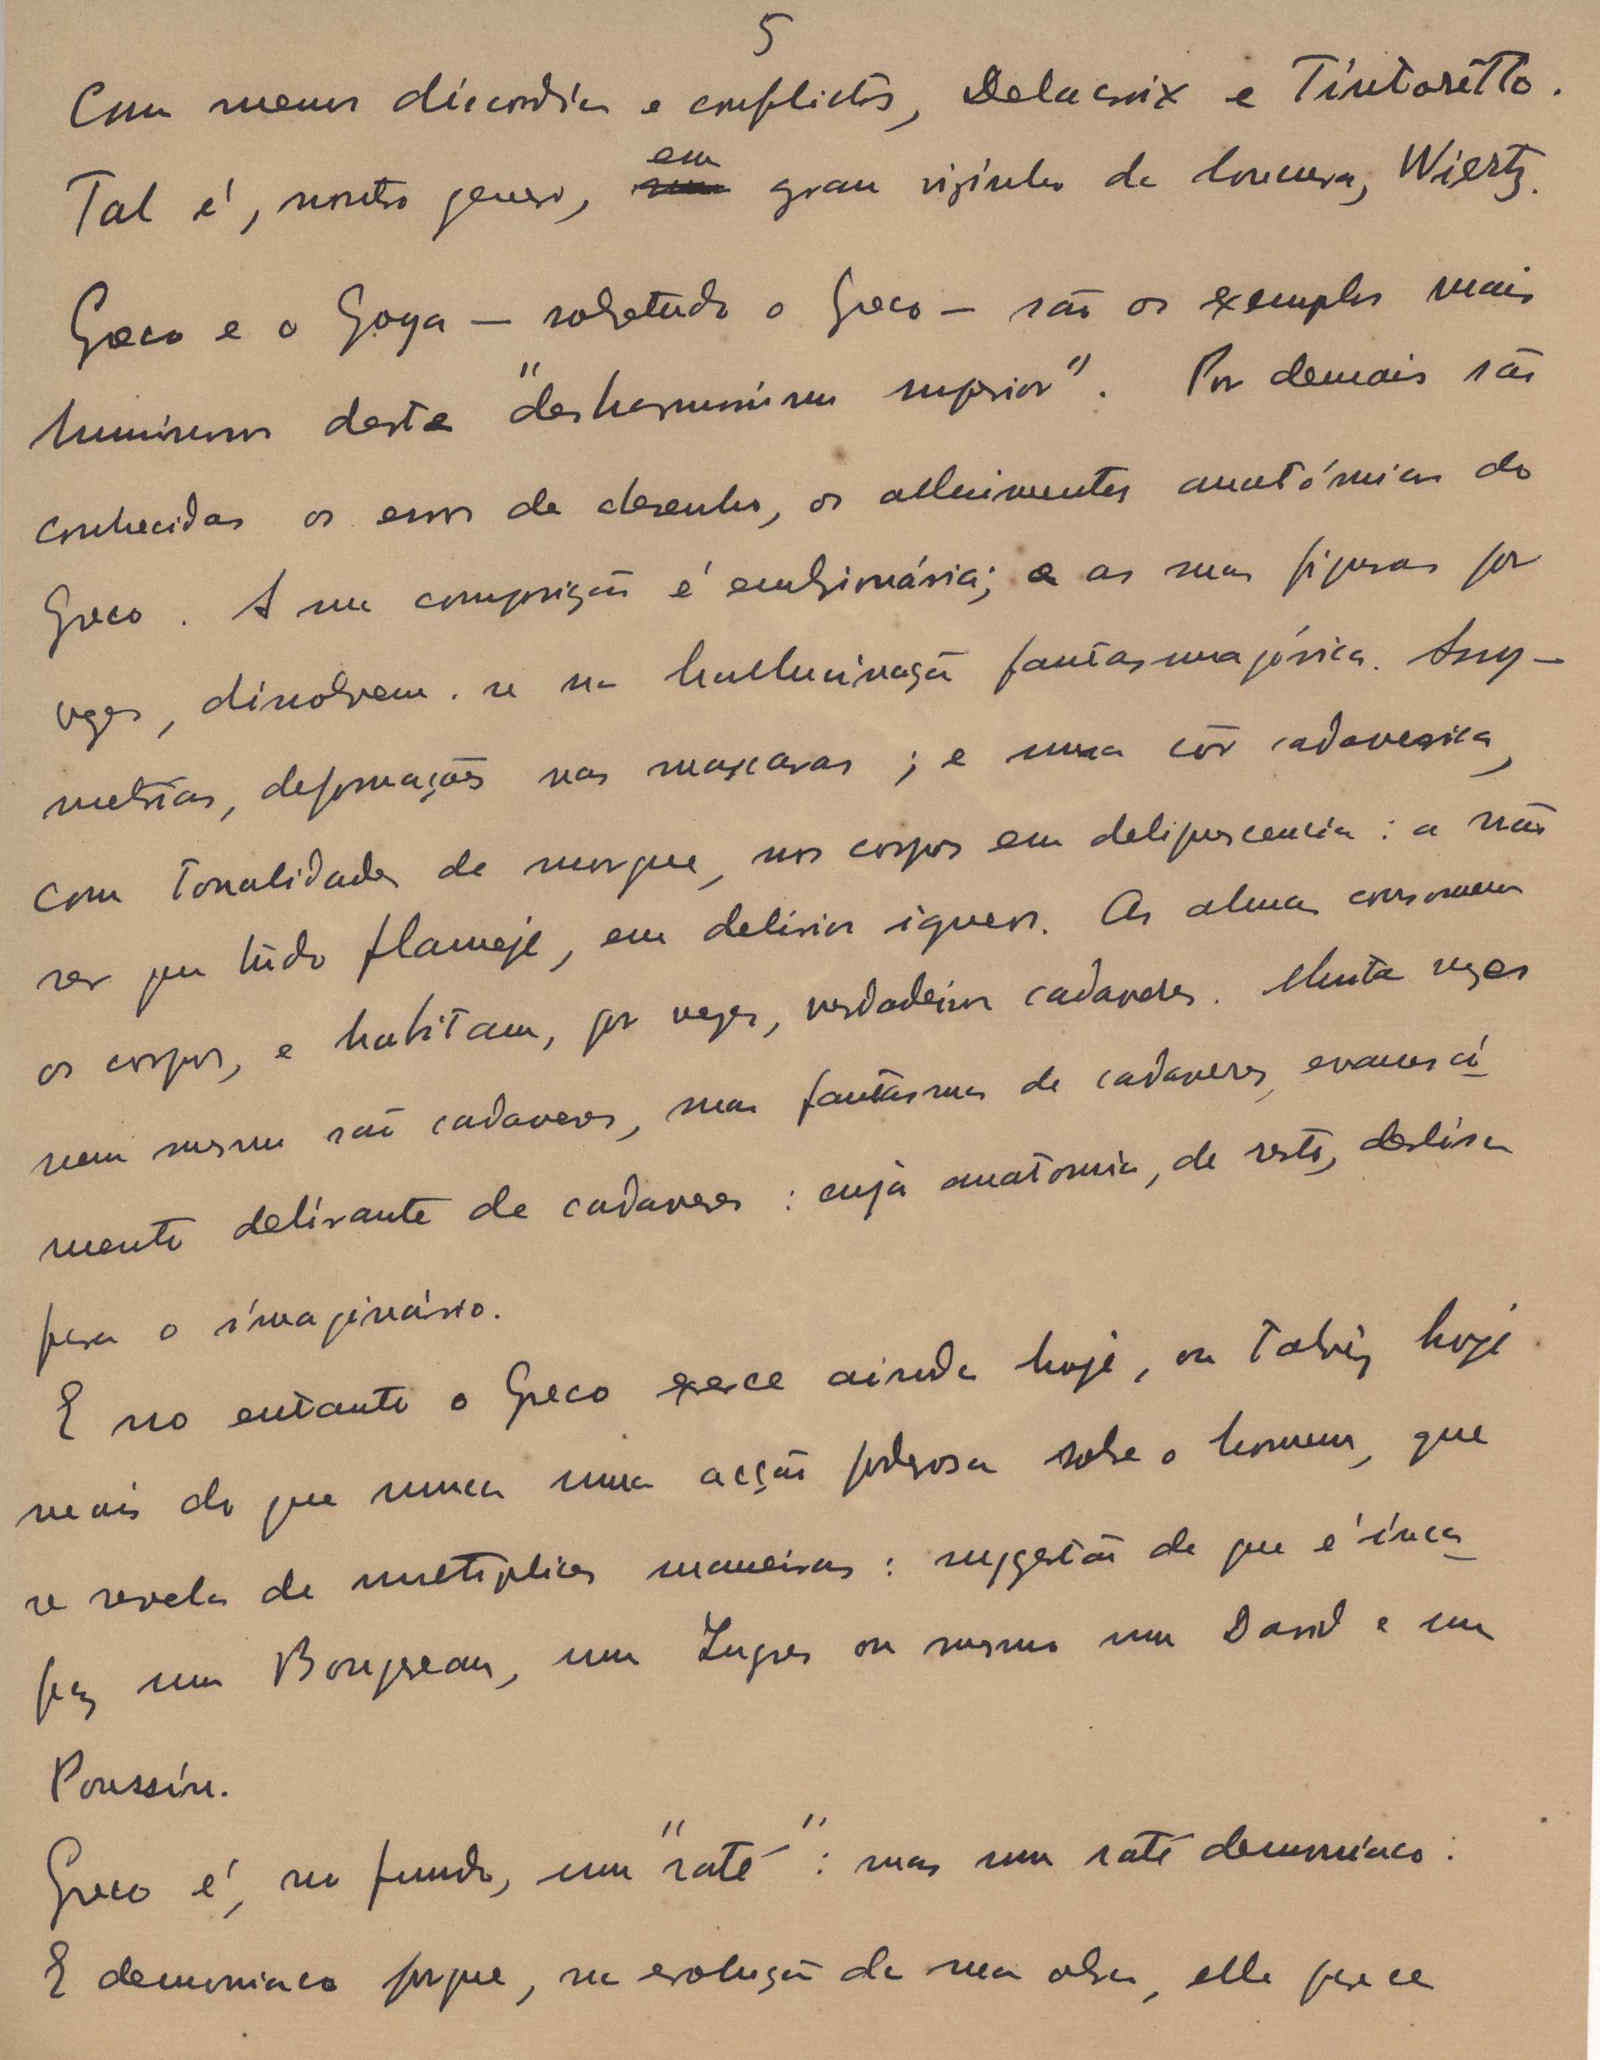 5
Com menos discordias e conflictos, Delacroix e Tintoretto.
Tal é, noutro genero, em grau visinho da loucura, Wiertz.
Greco e o Goya — sobretudo o Greco — são os exemplos mais
luminosos deste "desharmonismo superior". Por demais são
conhecidos os erros de desenho, os alheiamentos anatómicos do
Greco. A sua composição é embrionária; e as suas figuras por
vezes, dissolvem-se na hallucinação fantasmagórica. Assy-
metrias, deformações nas mascaras; e uma côr cadaverica,
com tonalidades de morgue, nos corpos em deliquescencia: a não
ser que tudo flameje, em delirios igneos. As almas consomem
os corpos, e habitam, por vezes, verdadeiros cadaveres. Muita vezes
nem mesmo são cadaveres, mas fantasmas de cadaveres, evanesci-
mento delirante de cadaveres: cuja anatomia, de resto, deslisa
para o imaginário.
E no entanto o Greco exerce ainda hoje, ou talvez hoje
mais do que nunca uma acção poderosa sobre o homem, que
se revela de multiplices maneiras: suggestão de que é inca-
paz um Bougereau, um Ingres ou mesmo um David e um
Poussin.
Greco é, no fundo, um "raté": mas um raté demoniaco.
E demoniaco porque, na evolução da sua obra, elle parece